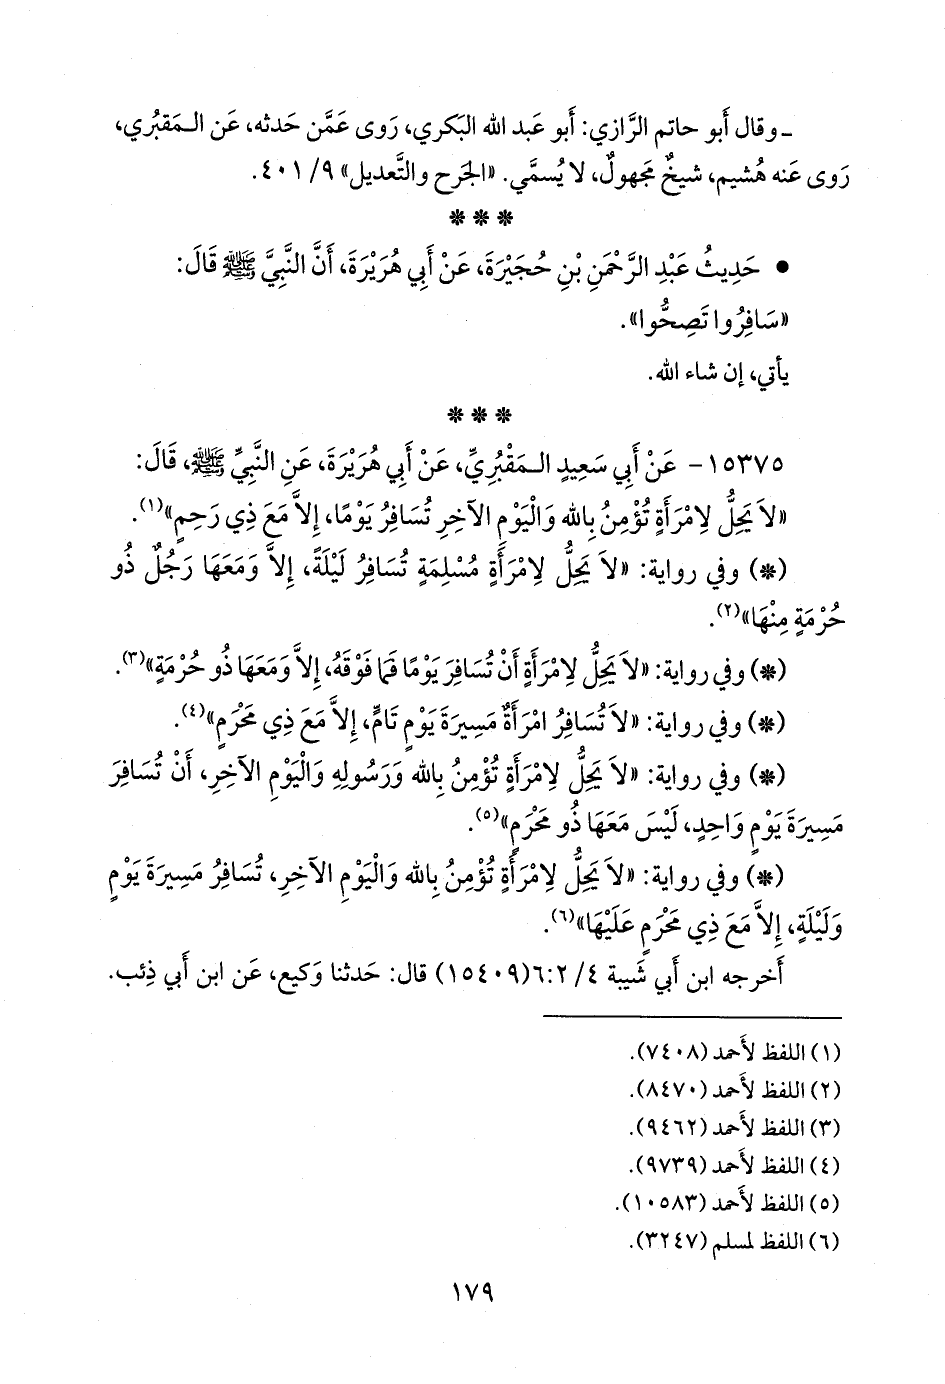 ـ وقال أَبو حاتم الرَّازي: أَبو عَبد الله البَكري، رَوى عَمَّن حَدثه، عَن الـمَقبُري،
رَوى عَنه هُشيم، شيخٌ مَجهولٌ، لا يُسمَّي. «الجَرح والتَّعديل» ٩/ ٤٠١.
***
• حَدِيثُ عَبْدِ الرَّحْمَنِ بْنِ حُجَيْرَةَ، عَنْ أَبِي هُرَيْرَةَ، أَنَّ النَّبِيَّ ﷺ قَالَ:
«سَافِرُوا تَصِحُّوا».
يأتي، إن شاء الله.
***
١٥٣٧٥- عَنْ أَبِي سَعِيدٍ الـمَقْبُرِيِّ، عَنْ أَبِي هُرَيْرَةَ، عَنِ النَّبِيِّ ﷺ، قَالَ:
«لاَ يَحِلُّ لاِمْرَأَةٍ تُؤْمِنُ بِالله وَالْيَوْمِ الآخِرِ تُسَافِرُ يَوْمًا، إِلاَّ مَعَ ذِي رَحِمٍ»(١).
(*) وفي رواية: «لاَ يَحِلُّ لاِمْرَأَةٍ مُسْلِمَةٍ تُسَافِرُ لَيْلَةً، إِلاَّ وَمَعَهَا رَجُلٌ ذُو
حُرْمَةٍ مِنْهَا»(٢).
(*) وفي رواية: «لاَ يَحِلُّ لاِمْرَأَةٍ أَنْ تُسَافِرَ يَوْمًا فَمَا فَوْقَهُ، إِلاَّ وَمَعَهَا ذُو حُرْمَةٍ»(٣).
(*) وفي رواية: «لاَ تُسَافِرُ امْرَأَةٌ مَسِيرَةَ يَوْمٍ تَامٍّ، إِلاَّ مَعَ ذِي مَحْرَمٍ»(٤).
(*) وفي رواية: «لاَ يَحِلُّ لاِمْرَأَةٍ تُؤْمِنُ بِالله وَرَسُولِهِ وَالْيَوْمِ الآخِرِ، أَنْ تُسَافِرَ
مَسِيرَةَ يَوْمٍ وَاحِدٍ، لَيْسَ مَعَهَا ذُو مَحْرَمٍ»(٥).
(*) وفي رواية: «لاَ يَحِلُّ لاِمْرَأَةٍ تُؤْمِنُ بِالله وَالْيَوْمِ الآخِرِ، تُسَافِرُ مَسِيرَةَ يَوْمٍ
وَلَيْلَةٍ، إِلاَّ مَعَ ذِي مَحْرَمٍ عَلَيْهَا»(٦).
أَخرجه ابن أَبي شَيبة ٤/ ٢: ٦(١٥٤٠٩) قال: حَدثنا وَكيع، عَن ابن أَبي ذِئب.
(١) اللفظ لأَحمد (٧٤٠٨).
(٢) اللفظ لأَحمد (٨٤٧٠).
(٣) اللفظ لأَحمد (٩٤٦٢).
(٤) اللفظ لأَحمد (٩٧٣٩).
(٥) اللفظ لأَحمد (١٠٥٨٣).
(٦) اللفظ لمسلم (٣٢٤٧).
١٧٩